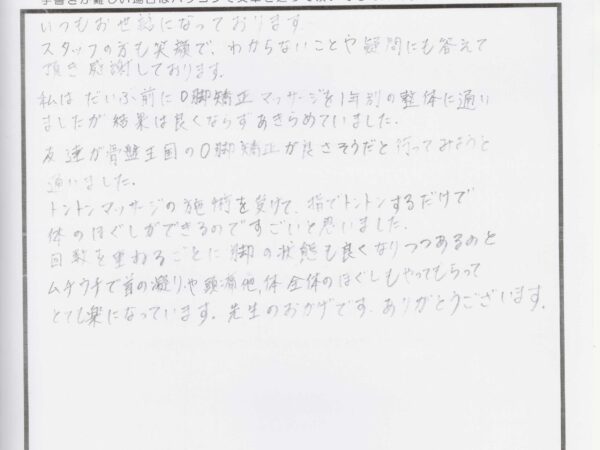 いつもお世話になっております.
スタッフの方も笑顔で、わからないことや疑問にも答えて
頂き感謝しております.
私は だいぶ前に O脚矯正 マッサージを1年別の整体に通い
ましたが 結果は良くならず あきらめていました.
友達が骨盤王国のO脚矯正が良さそうだと 行ってみようと
通いました.
トントンマッサージの施術を受けて、指でトントンするだけで
体のほぐしができるのですごいと思いました.
回数を重ねるごとに 脚の状態も良くなりつつあるのと
ムチウチで首の凝りや頭痛他,体全体のほぐしもやってもらって
とても楽になっています. 先生のおかげです. ありがとうございます.